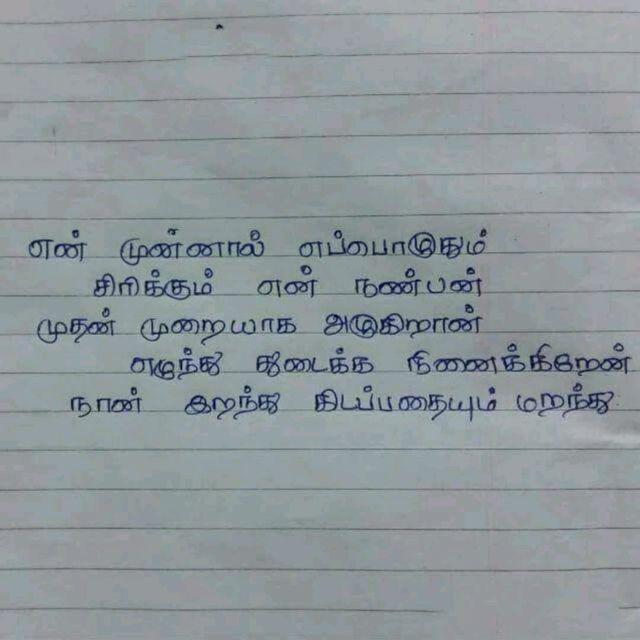 என் முன்னால் எப்பொழுதும்
சிரிக்கும் என் நண்பன்
முதன் முறையாக அழுகிறான்
எழுந்து துடைக்க நினைக்கிறேன்
நான் இறந்து கிடப்பதையும் மறந்து.